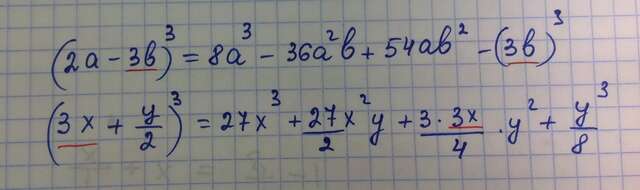 (2a - 3b)³ = 8a³ - 36a²b + 54ab² - (3b)³
(3x + y/2)³ = 27x³ + 27x²y/2 + 3·3x/4 · y² + y³/8